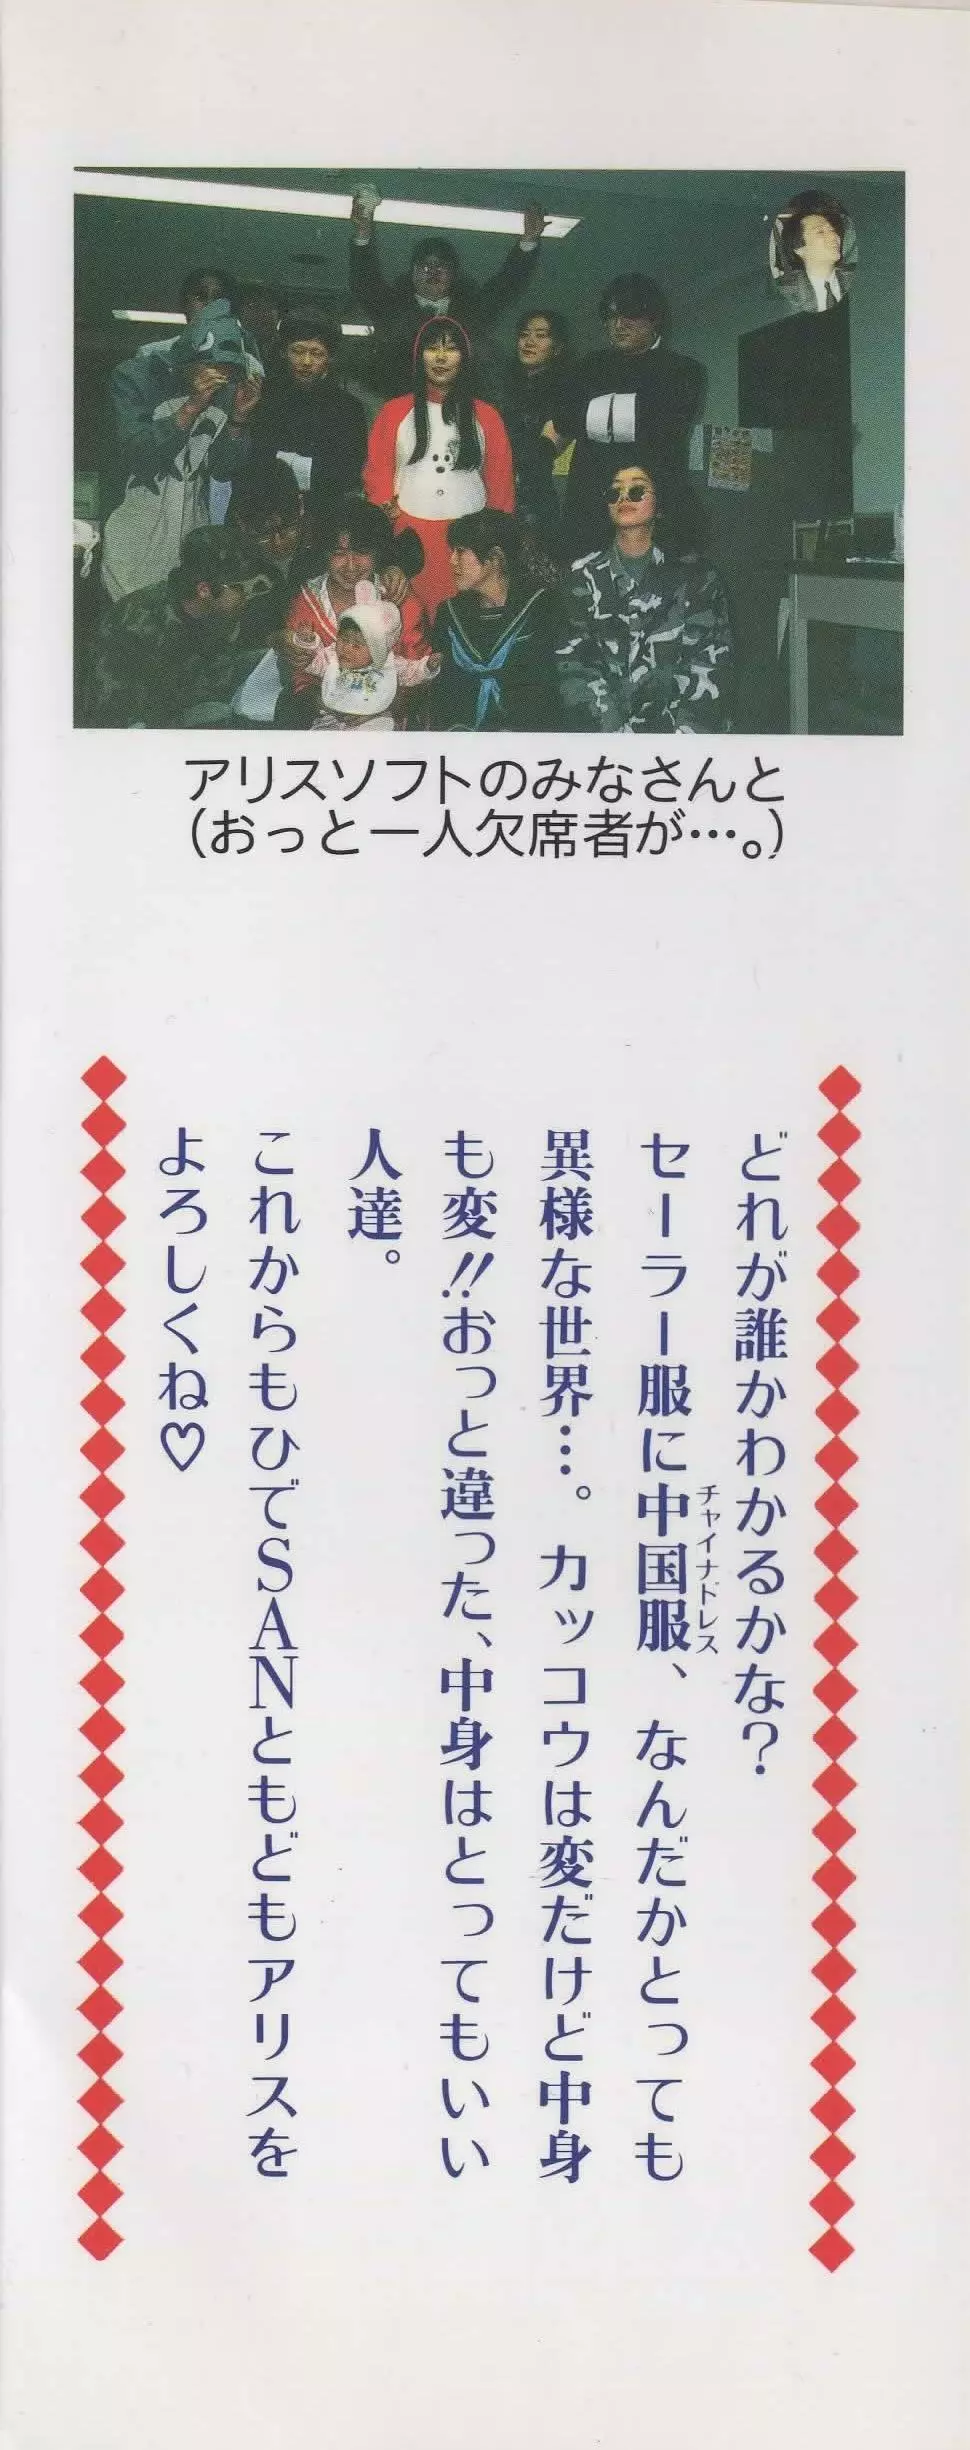 アリスソフトのみなさんと
(おっと一人欠席者が…。)
どれが誰かわかるかな?
セーラー服に中国服、なんだかとっても
チャイナドレス
異様な世界…。カッコウは変だけど中身
も変!!おっと違った、中身はとってもいい
人達。
これからもひでSANともどもアリスを
よろしくね♡